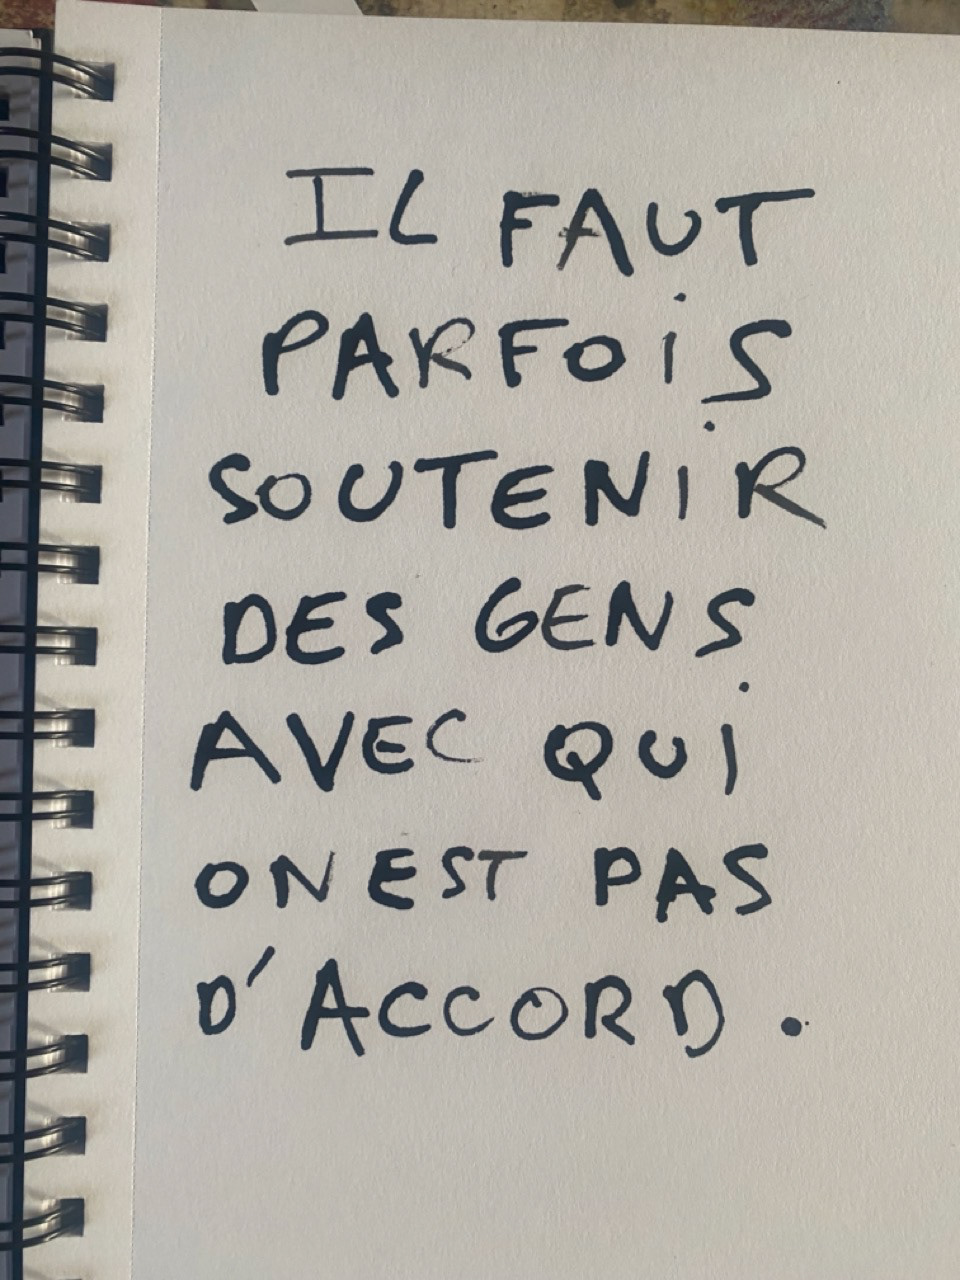 IL FAUT
PARFOiS
SOUTENiR
DES GENS
AVEC QUi
ON EST PAS
D'ACCORD.